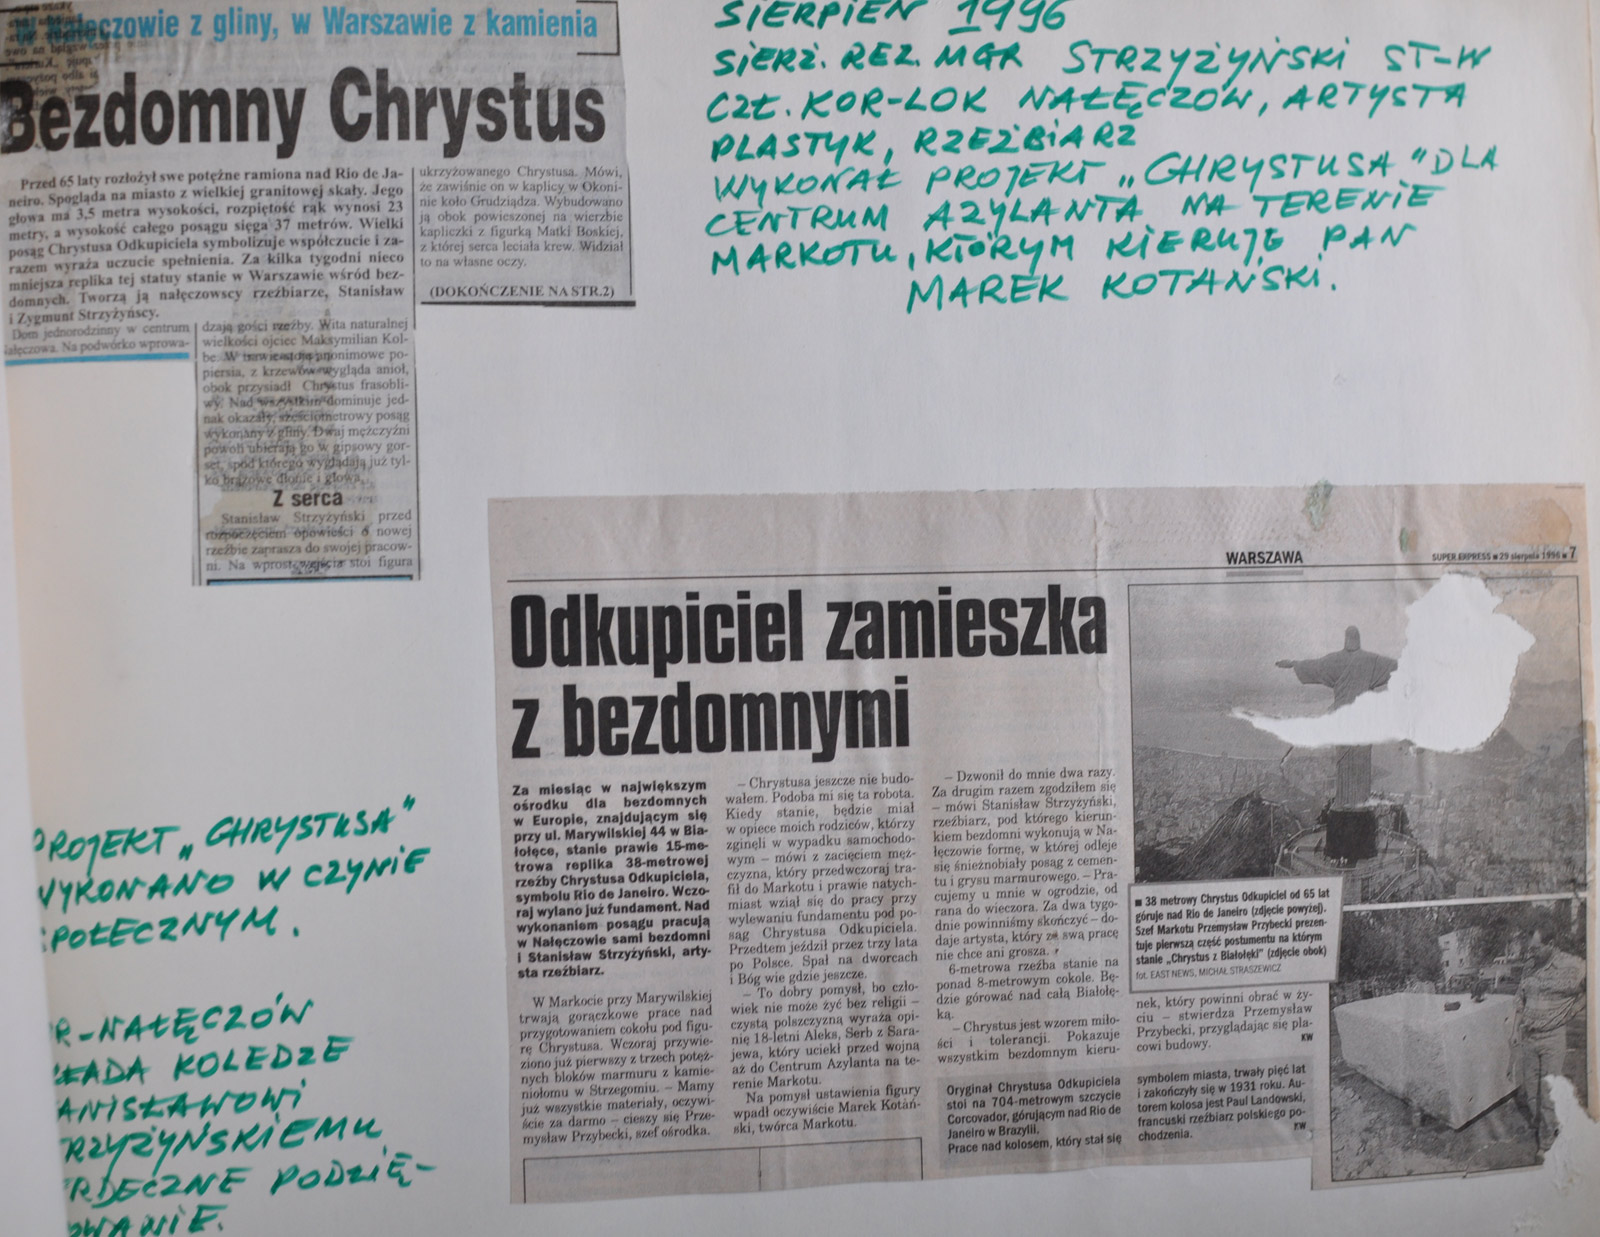 Nałęczowie z gliny, w Warszawie z kamienia
Bezdomny Chrystus
Przed 65 laty rozłożył swe potężne ramiona nad Rio de Ja-
neiro. Spogląda na miasto z wielkiej granitowej skały. Jego
głowa ma 3,5 metra wysokości, rozpiętość rąk wynosi 23
metry, a wysokość całego posągu sięga 37 metrów. Wielki
posąg Chrystusa Odkupiciela symbolizuje współczucie i za-
razem wyraża uczucie spełnienia. Za kilka tygodni nieco
mniejsza replika tej statuy stanie w Warszawie wśród bez-
domnych. Tworzą ją nałęczowscy rzeźbiarze, Stanisław
i Zygmunt Strzyżyńscy.
Dom jednorodzinny w centrum
Nałęczowa. Na podwórko wprowa-
dzają gości rzeźby. Wita naturalnej
wielkości ojciec Maksymilian Kol-
be. W trawie stoją anonimowe po-
piersia, z krzewów wygląda anioł,
obok przysiadł Chrystus frasobli-
wy. Nad wszystkim dominuje jed-
nak okazały, sześciometrowy posąg
wykonany z gliny. Dwaj mężczyźni
powoli ubierają go w gipsowy gor-
set, spod którego wyglądają już tyl-
ko brązowe dłonie i głowa.
Z serca
Stanisław Strzyżyński przed
rozpoczęciem opowieści o nowej
rzeźbie zaprasza do swojej pracow-
ni. Na wprost wejścia stoi figura
ukrzyżowanego Chrystusa. Mówi,
że zawiśnie on w kaplicy w Okoni-
nie koło Grudziądza. Wybudowano
ją obok powieszonej na wierzbie
kapliczki z figurką Matki Boskiej,
z której serca leciała krew. Widział
to na własne oczy.
(DOKOŃCZENIE NA STR.2)
SIERPIEŃ 1996
SIERŻ. REZ. MGR STRZYŻYŃSKI ST-W
CZŁ. KOR-LOK NAŁĘCZÓW, ARTYSTA
PLASTYK, RZEŹBIARZ
WYKONAŁ PROJEKT „CHRYSTUSA" DLA
CENTRUM AZYLANTA NA TERENIE
MARKOTU, KTÓRYM KIERUJE PAN
MAREK KOTAŃSKI.
PROJEKT „CHRYSTUSA"
WYKONANO W CZYNIE
SPOŁECZNYM.
R-NAŁĘCZÓW
ŁADA KOLEDZE
ANISŁAWOWI
RZYŻYŃSKIEMU
RDECZNE PODZIĘ-
OWANIE.
WARSZAWA
SUPER EXPRESS ■ 29 sierpnia 1996 ■ 7
Odkupiciel zamieszka
z bezdomnymi
Za miesiąc w największym
ośrodku dla bezdomnych
w Europie, znajdującym się
przy ul. Marywilskiej 44 w Bia-
łołęce, stanie prawie 15-me-
trowa replika 38-metrowej
rzeźby Chrystusa Odkupiciela,
symbolu Rio de Janeiro. Wczo-
raj wylano już fundament. Nad
wykonaniem posągu pracują
w Nałęczowie sami bezdomni
i Stanisław Strzyżyński, arty-
sta rzeźbiarz.
W Markocie przy Marywilskiej
trwają gorączkowe prace nad
przygotowaniem cokołu pod figu-
rę Chrystusa. Wczoraj przywie-
ziono już pierwszy z trzech potęż-
nych bloków marmuru z kamie-
niołomu w Strzegomiu. – Mamy
już wszystkie materiały, oczywi-
ście za darmo – cieszy się Prze-
mysław Przybecki, szef ośrodka.
– Chrystusa jeszcze nie budo-
wałem. Podoba mi się ta robota.
Kiedy stanie, będzie miał
w opiece moich rodziców, którzy
zginęli w wypadku samochodo-
wym – mówi z zacięciem męż-
czyzna, który przedwczoraj tra-
fił do Markotu i prawie natych-
miast wziął się do pracy przy
wylewaniu fundamentu pod po-
sąg Chrystusa Odkupiciela.
Przedtem jeździł przez trzy lata
po Polsce. Spał na dworcach
i Bóg wie gdzie jeszcze.
– To dobry pomysł, bo czło-
wiek nie może żyć bez religii –
czystą polszczyzną wyraża opi-
nię 18-letni Aleks, Serb z Sara-
jewa, który uciekł przed wojną
aż do Centrum Azylanta na te-
renie Markotu.
Na pomysł ustawienia figury
wpadł oczywiście Marek Kotań-
ski, twórca Markotu.
– Dzwonił do mnie dwa razy.
Za drugim razem zgodziłem się
– mówi Stanisław Strzyżyński,
rzeźbiarz, pod którego kierun-
kiem bezdomni wykonują w Na-
łęczowie formę, w której odleje
się śnieżnobiały posąg z cemen-
tu i grysu marmurowego. – Pra-
cujemy u mnie w ogrodzie, od
rana do wieczora. Za dwa tygo-
dnie powinniśmy skończyć – do-
daje artysta, który za swą pracę
nie chce ani grosza.
6-metrowa rzeźba stanie na
ponad 8-metrowym cokole. Bę-
dzie górować nad całą Białołę-
ką.
– Chrystus jest wzorem miło-
ści i tolerancji. Pokazuje
wszystkim bezdomnym kieru-
nek, który powinni obrać w ży-
ciu – stwierdza Przemysław
Przybecki, przyglądając się pla-
cowi budowy.
KW
■ 38 metrowy Chrystus Odkupiciel od 65 lat
góruje nad Rio de Janeiro (zdjęcie powyżej).
Szef Markotu Przemysław Przybecki prezen-
tuje pierwszą część postumentu na którym
stanie „Chrystus z Białołęki" (zdjęcie obok)
fot. EAST NEWS, MICHAŁ STRASZEWICZ
Oryginał Chrystusa Odkupiciela
stoi na 704-metrowym szczycie
Corcovador, górującym nad Rio de
Janeiro w Brazylii.
Prace nad kolosem, który stał się
symbolem miasta, trwały pięć lat
i zakończyły się w 1931 roku. Au-
torem kolosa jest Paul Landowski,
francuski rzeźbiarz polskiego po-
chodzenia.
KW